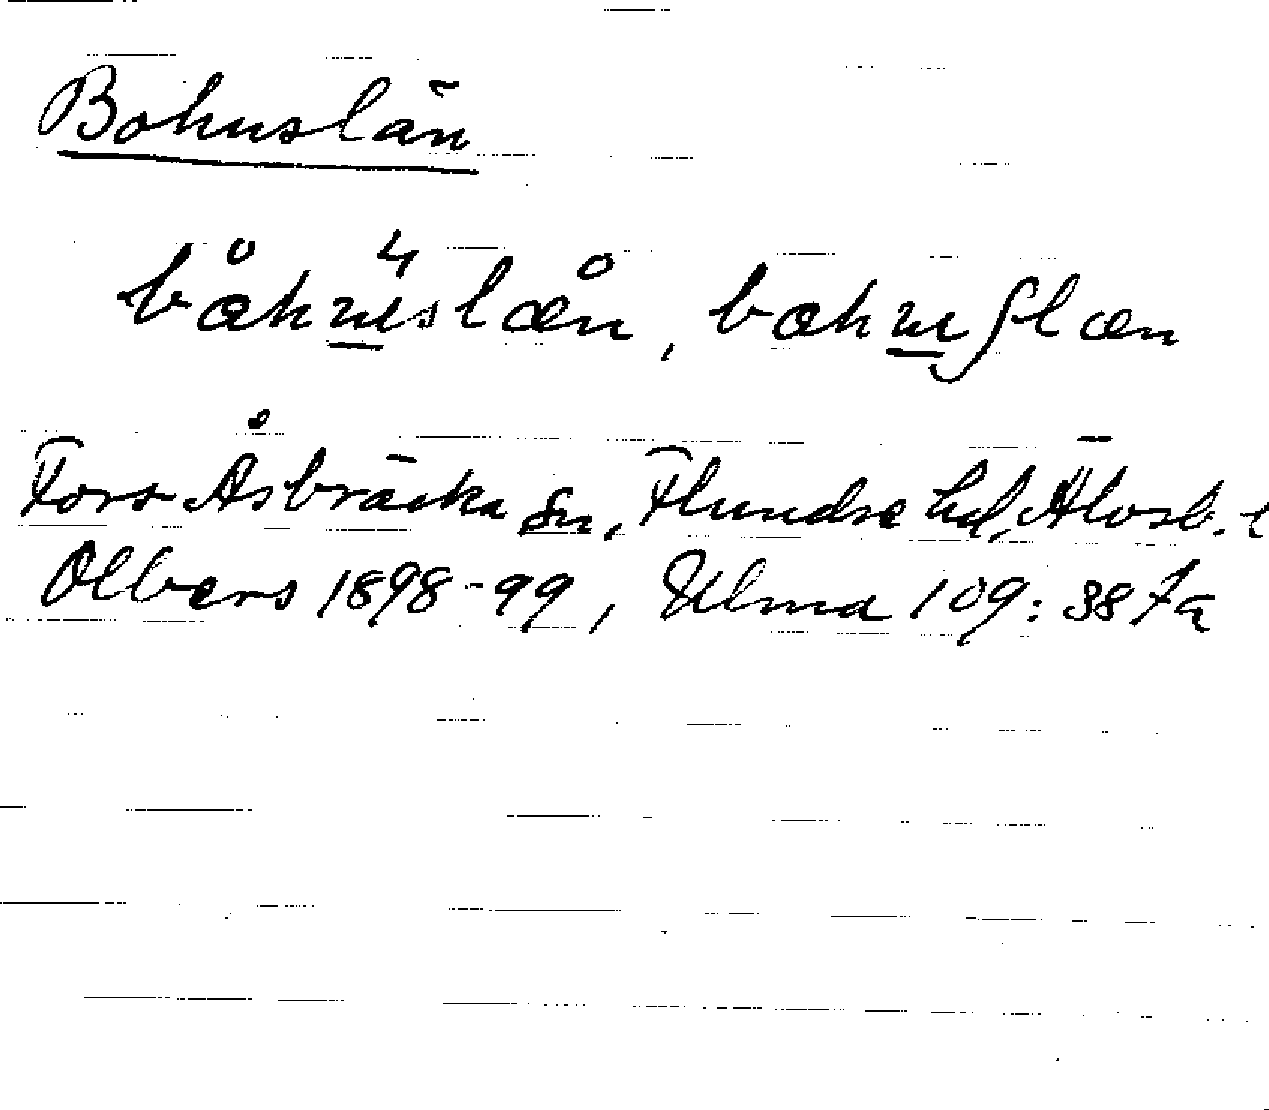 Bohuslän
båhuslæn, bæhuslæn
Fors-Åsbräcka sn, Flundre hd, Älvsb. l
Olbers 1898-99, Ulma 109:387a